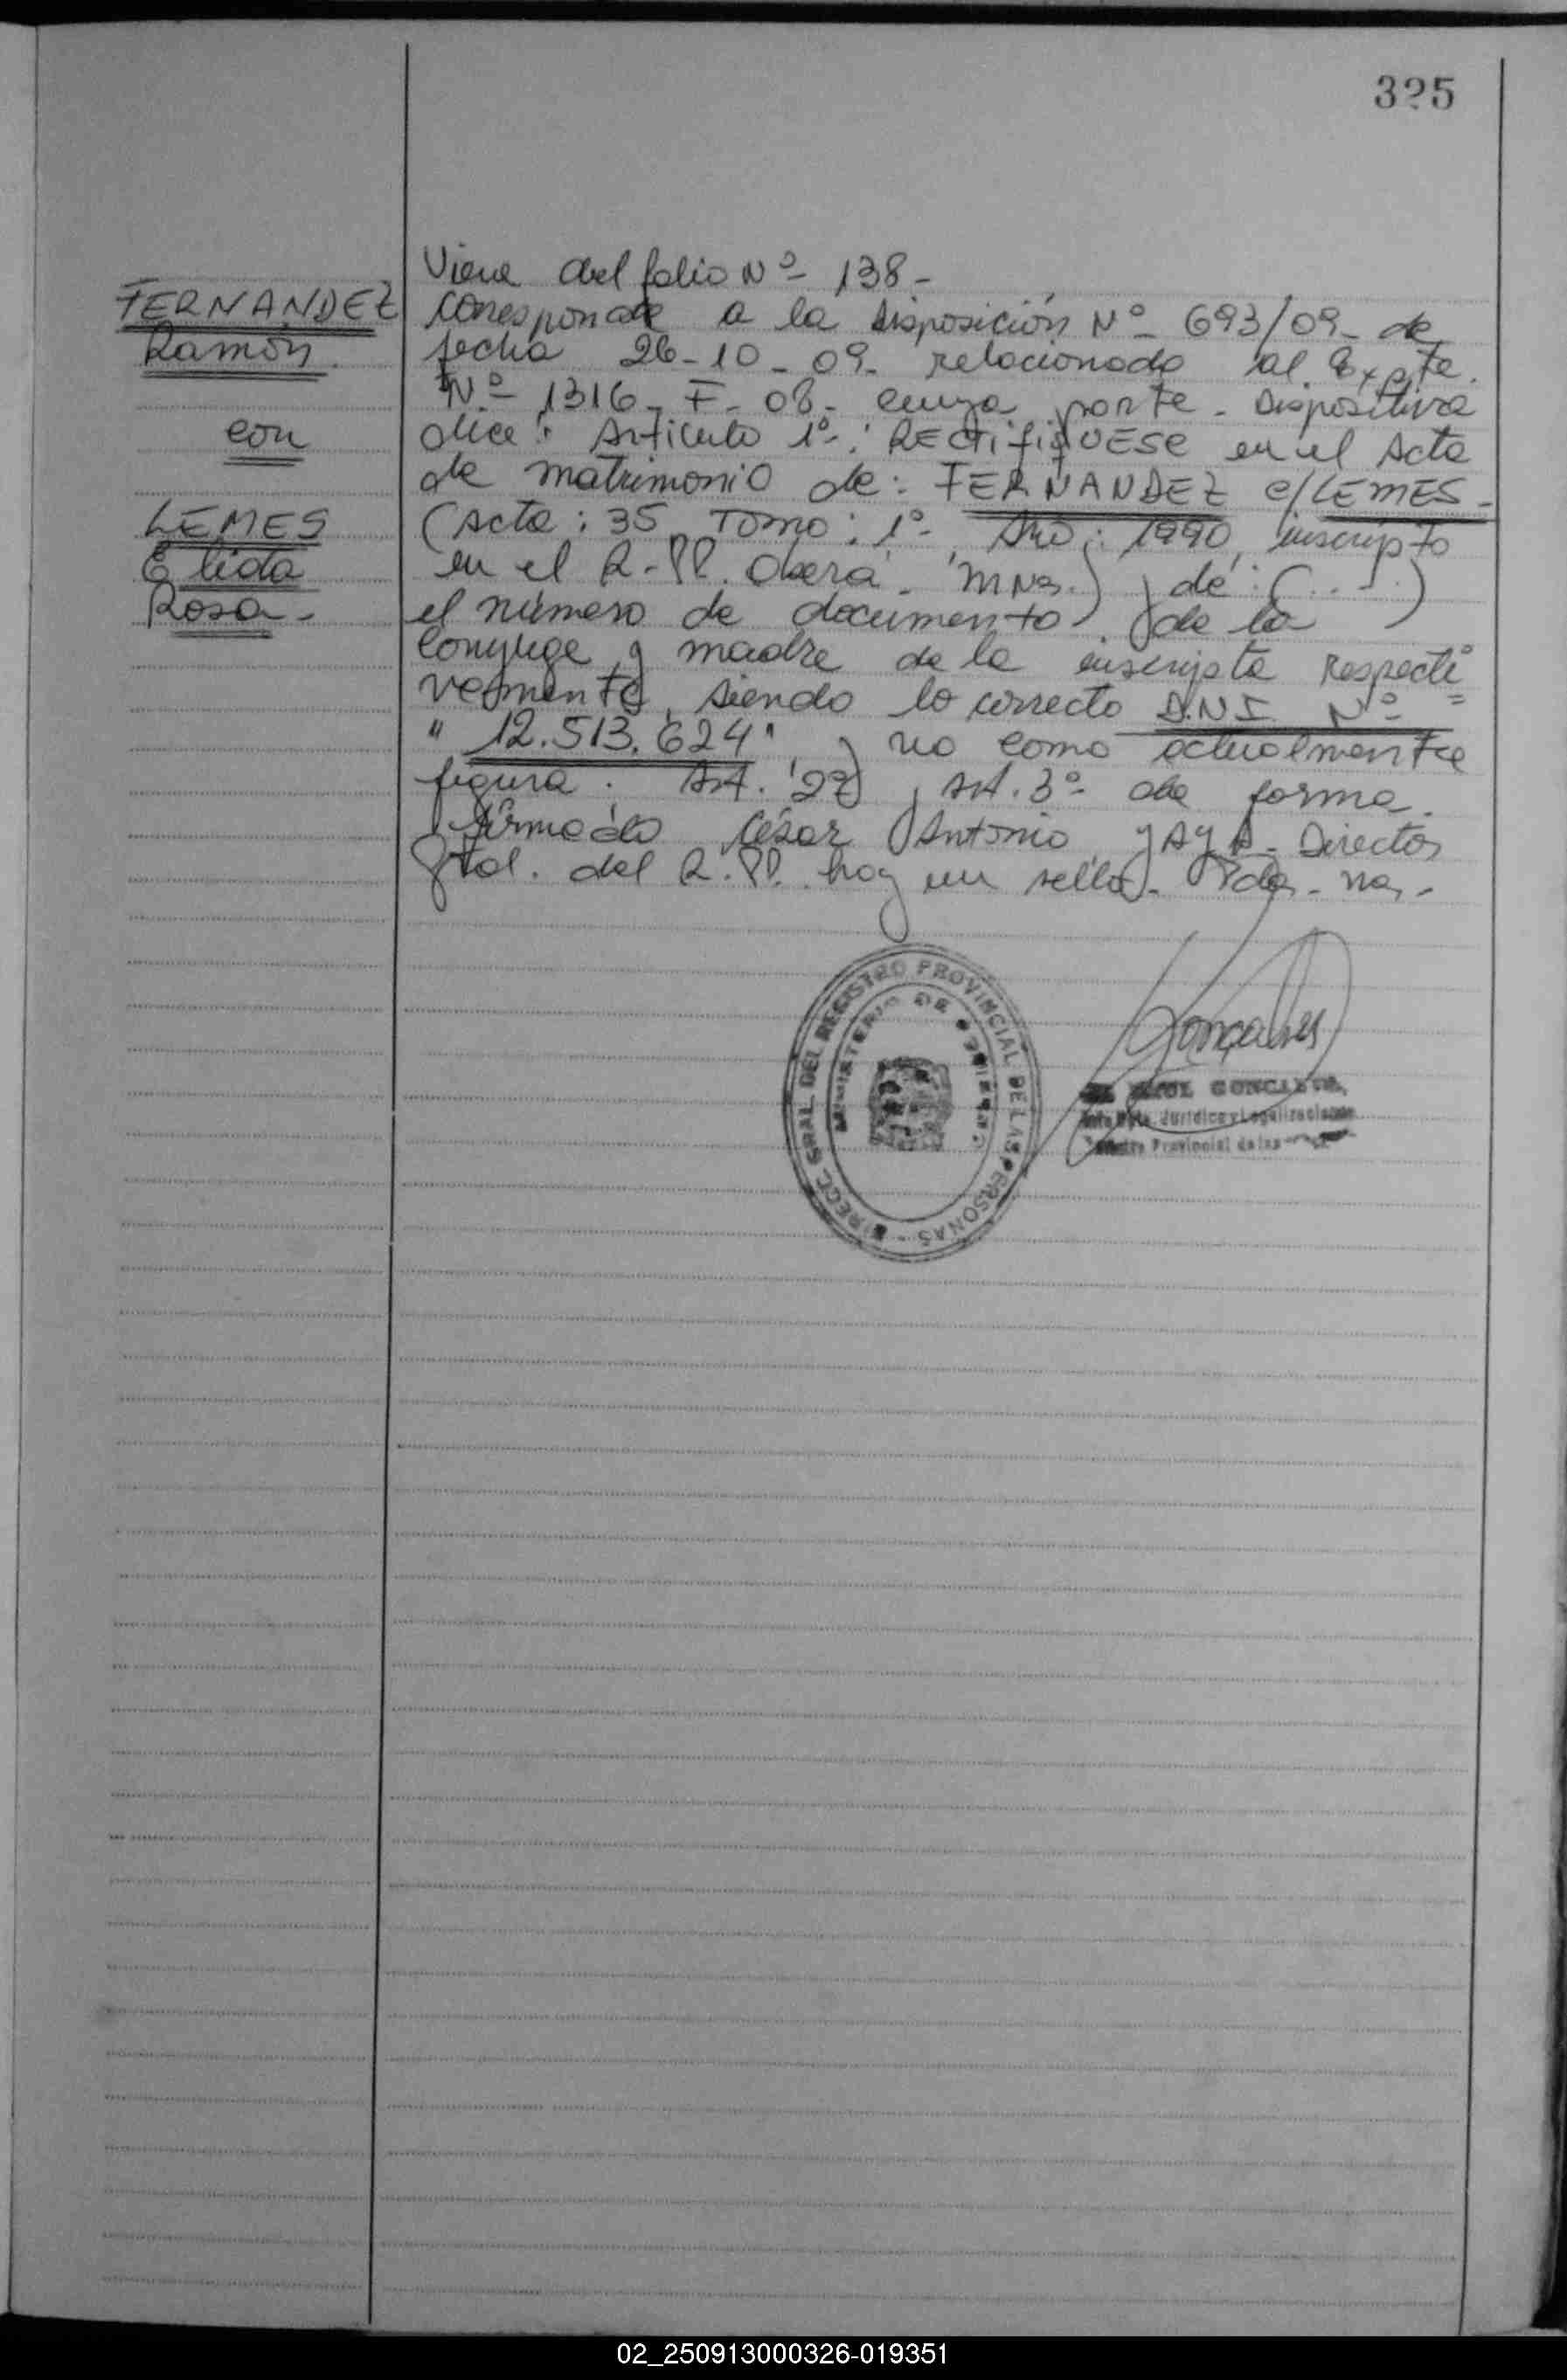 325
FERNANDEZ
Ramón.
con
LEMES
Elida
Rosa.-
Viene del folio Nº 138 -
Corresponde a la Disposición Nº 693/09 - de
fecha 26-10-09- relacionado al Expte.
Nº 1316 - F - 08 - cuya parte - Dispositiva
dice: Articulo 1º: RECTIFIQUESE en el Acta
de matrimonio de: FERNANDEZ c/LEMES -
(Acta: 35 Tomo: 1º - Año: 1990, inscripto
en el R.PP. Oberá - Mns.) y de: (...)
el número de documento de la
Conyuge y madre de la inscripta Respecti
vamente, siendo lo correcto D.N.I. Nº
"12.513.624" y no como actualmente
figura. Art. 2º) y Art. 3º de forma.
firmado César Antonio YAYA - Director
Gral. del R.PP. hay un sello -
DIRECC. GRAL. DEL REGISTRO PROVINCIAL DE LAS PERSONAS -
MINISTERIO DE GOBIERNO
Goncalves
GONCALVES
Dpto. Jurídico y Legalizaciones
Registro Provincial de las
02_250913000326-019351